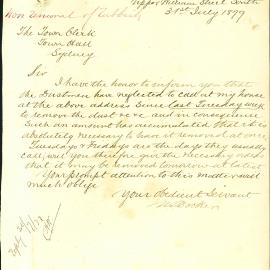 Upper William Street South
31st July 1899
Non removal of rubbish
The Town Clerk
Town Hall
Sydney
Sir
I have the honor to inform you that
the Dustmen have neglected to call at my house
at the above address since last Tuesday week
to remove the dust &c &c and in consequence
such an amount has accumulated that it is
absolutely necessary to have it removed at once
Tuesdays & Fridays are the days they usually
call, will you therefore give the necessary orders
that it may be removed tomorrow at latest
Your prompt attention to this matter will
much oblige
Your Obedient Servant